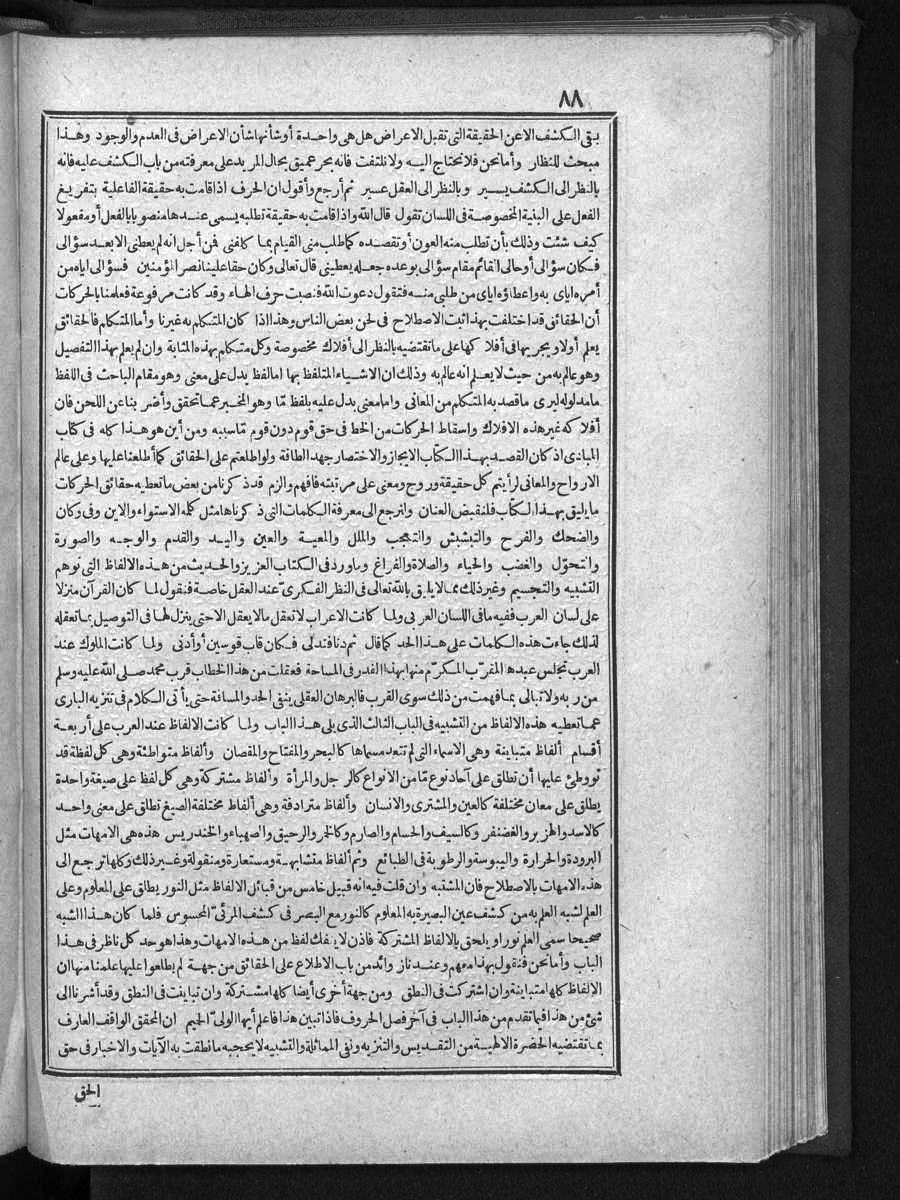 ٨٨
بقى الكشف الا عن الحقيقة التى تقبل الاعراض هل هى واحدة أو شأنها شأن الاعراض فى العدم والوجود وهذا
مبحث للنظار وأما نحن فلا نحتاج اليه ولا نلتفت فانه بحر عميق يحال المريد على معرفته من باب الكشف عليه فانه
بالنظر الى الكشف يسير وبالنظر الى العقل عسير ثم أرجع وأقول ان الحرف اذا قامت به حقيقة الفاعلية بتفريغ
الفعل على البنية المخصوصة فى اللسان تقول قال الله واذا قامت به حقيقة تطلبه يسمى عندها منصوبا بالفعل أو مفعولا
كيف شئت وذلك بأن تطلب منه العون أو تقصده كما طلب منى القيام بما كلفنى فمن أجل انه لم يعطنى الا بعد سؤالى
فكان سؤالى أو حالى القائم مقام سؤالى بوعده جعله يعطينى قال تعالى وكان حقا علينا نصر المؤمنين فسؤالى اياه من
أمره اياى به واعطاؤه اياى من طلبى منه فتقول دعوت الله فنصبت حرف الهاء وقد كانت مرفوعة فعلمنا بالحركات
أن الحقائق قد اختلفت بهذا ثبت الاصطلاح فى لحن بعض الناس وهذا اذا كان المتكلم به غيرنا وأما المتكلم فالحقائق
يعلم أولا ويجريها فى أفلاكها على ما تقتضيه بالنظر الى أفلاك مخصوصة وكل متكلم بهذه المثابة وان لم يعلم بهذا التفصيل
وهو عالم به من حيث لا يعلم انه عالم به وذلك ان الاشياء المتلفظ بها اما لفظ يدل على معنى وهو مقام الباحث فى اللفظ
ما مدلوله ليرى ما قصد به المتكلم من المعانى واما معنى يدل عليه بلفظ مّا وهو المخبر عما تحقق وأضر بنا عن اللحن فان
أفلاكه غير هذه الافلاك واسقاط الحركات من الخط فى حق قوم دون قوم ما سببه ومن أين هو هذا كله فى كتاب
المبادى اذ كان القصد بهذا الكتاب الايجاز والاختصار جهد الطاقة ولو اطلعتم على الحقائق كما أطلعنا عليها وعلى عالم
الارواح والمعانى لرأيتم كل حقيقة وروح ومعنى على مرتبته فافهم والزم قد ذكرنا من بعض ما تعطيه حقائق الحركات
ما يليق بهذا الكتاب فلنقبض العنان ولنرجع الى معرفة الكلمات التى ذكرناها مثل كلمة الاستواء والاين وفى وكان
والضحك والفرح والتبشبش والتعجب والملل والمعية والعين واليد والقدم والوجه والصورة
والتحوّل والغضب والحياء والصلاة والفراغ وما ورد فى الكتاب العزيز والحديث من هذه الالفاظ التى توهم
التشبيه والتجسيم وغير ذلك مما لا يليق بالله تعالى فى النظر الفكرىّ عند العقل خاصة فنقول لما كان القرآن منزلا
على لسان العرب ففيه ما فى اللسان العربى ولما كانت الاعراب لا تعقل ما لا يعقل الا حتى ينزل لها فى التوصيل بما تعقله
لذلك جاءت هذه الكلمات على هذا الحد كما قال ثم دنا فتدلى فكان قاب قوسين أو أدنى ولما كانت الملوك عند
العرب تجلس عبدها المقرّب المكرّم منها بهذا القدر فى المساحة فعقلت من هذا الخطاب قرب محمد صلى الله عليه وسلم
من ربه ولا تبالى بما فهمت من ذلك سوى القرب فالبرهان العقلى ينفى الحد والمسافة حتى يأتى الكلام فى تنزيه البارى
عما تعطيه هذه الالفاظ من التشبيه فى الباب الثالث الذى يلى هذا الباب ولما كانت الالفاظ عند العرب على أربعة
أقسام ألفاظ متباينة وهى الاسماء التى لم تتعد مسماها كالبحر والمفتاح والمقصان وألفاظ متواطئة وهى كل لفظة قد
تووطئ عليها أن تطلق على آحاد نوع مّا من الانواع كالرجل والمرأة وألفاظ مشتركة وهى كل لفظ على صيغة واحدة
يطلق على معان مختلفة كالعين والمشترى والانسان وألفاظ مترادفة وهى ألفاظ مختلفة الصيغ تطلق على معنى واحد
كالاسد والهزبر والغضنفر وكالسيف والحسام والصارم وكالخمر والرحيق والصهباء والخندريس هذه هى الامهات مثل
البرودة والحرارة واليبوسة والرطوبة فى الطبائع وثم ألفاظ متشابهة ومستعارة ومنقولة وغير ذلك وكلها ترجع الى
هذه الامهات بالاصطلاح فان المشتبه وان قلت فيه انه قبيل خامس من قبائل الالفاظ مثل النور يطلق على المعلوم وعلى
العلم لشبه العلم به من كشف عين البصيرة به المعلوم كالنور مع البصر فى كشف المرئىّ المحسوس فلما كان هذا الشبه
صحيحا سمى العلم نورا ويلحق بالالفاظ المشتركة فاذن لا ينفك لفظ من هذه الامهات وهذا هو حد كل ناظر فى هذا
الباب وأما نحن فنقول بهذا معهم وعندنا زوائد من باب الاطلاع على الحقائق من جهة لم يطلعوا عليها علمنا منها ان
الالفاظ كلها متباينة وان اشتركت فى النطق ومن جهة أخرى أيضا كلها مشتركة وان تباينت فى النطق وقد أشرنا الى
شئ من هذا فيما تقدم من هذا الباب فى آخر فصل الحروف فاذا تبين هذا فاعلم أيها الولىّ الحميم ان المحقق الواقف العارف
بما تقتضيه الحضرة الالهية من التقديس والتنزيه ونفى المماثلة والتشبيه لا يحجبه ما نطقت به الآيات والاخبار فى حق
الحق